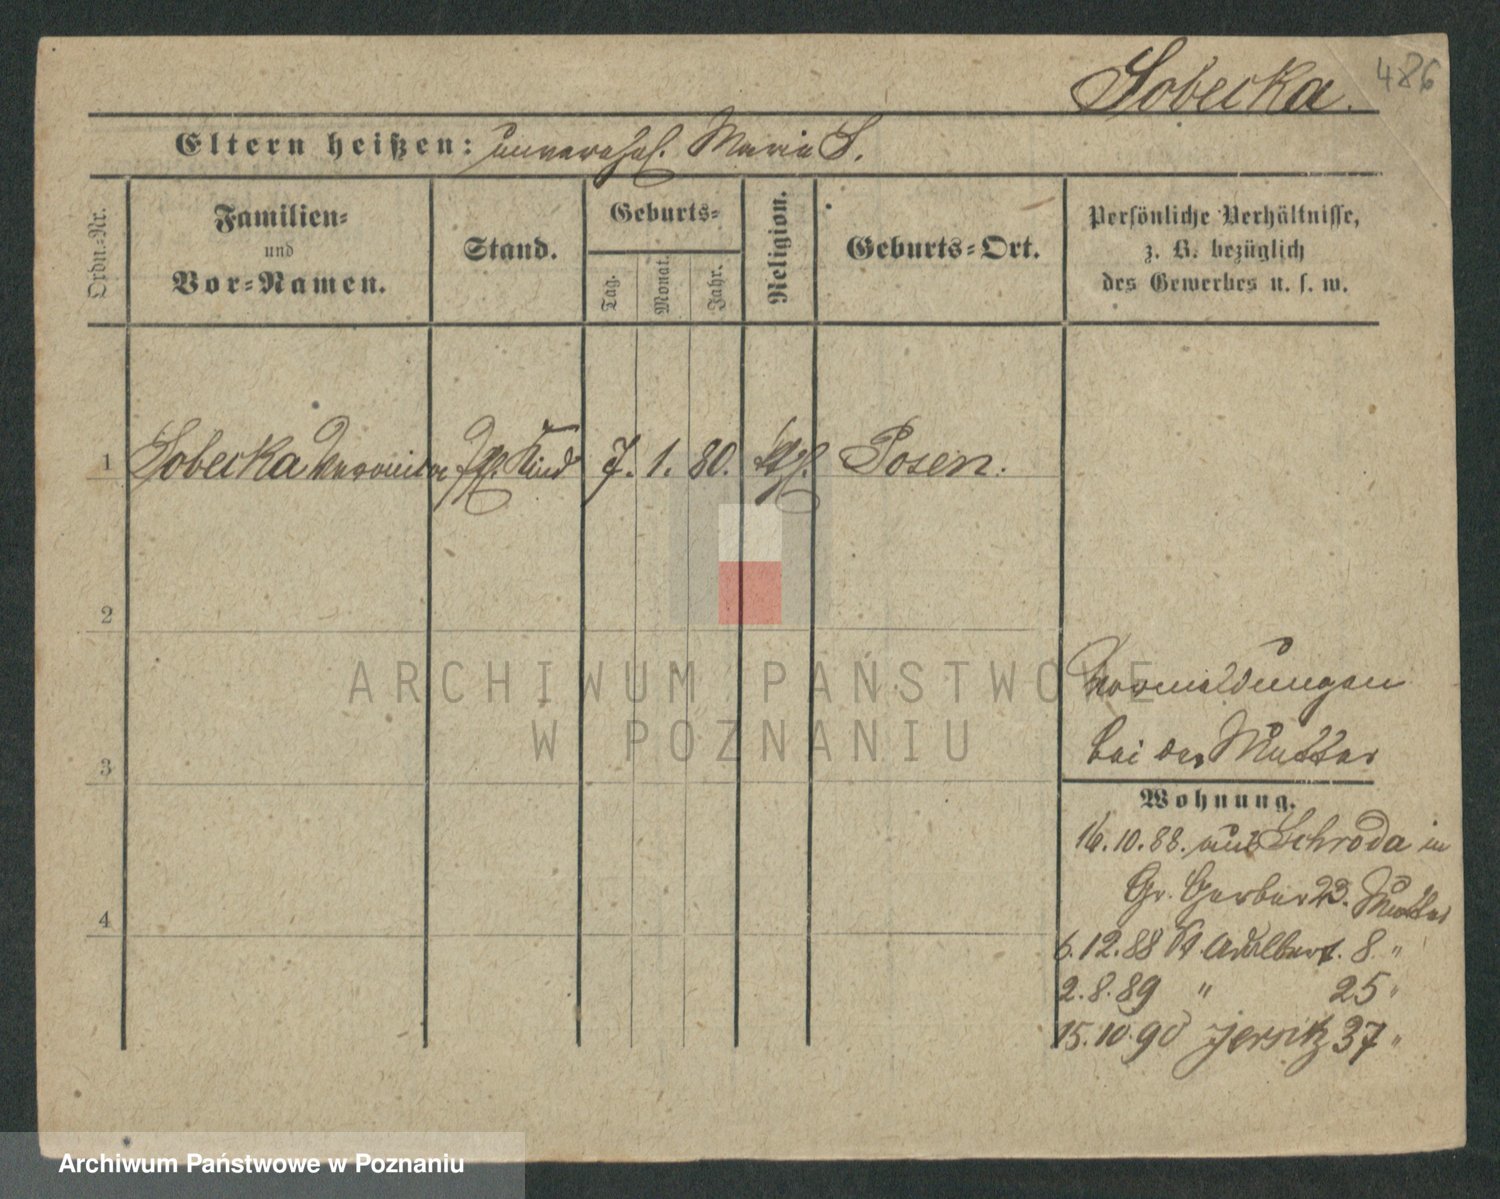 486
Sobecka.
Eltern heißen: unverehel. Maria S.
Ordn.-Nr.
Familien-
und
Vor-Namen.
Stand.
Geburts-
Tag.
Monat.
Jahr.
Religion.
Geburts-Ort.
Persönliche Verhältnisse,
z. B. bezüglich
des Gewerbes u. s. w.
1 Sobecka Veronika Kind 7. 1. 80. kth. Posen.
2
3
4
Vormeldungen
bei der Mutter
Wohnung.
16.10.88. aus Schroda in
Gr. Gerber 23. Mutter
6.12.88 St. Adalbert. 8. "
2.8.89 " 25 "
15.10.90 Jersitz 37 "
ARCHIWUM PAŃSTWOWE
W POZNANIU
Archiwum Państwowe w Poznaniu